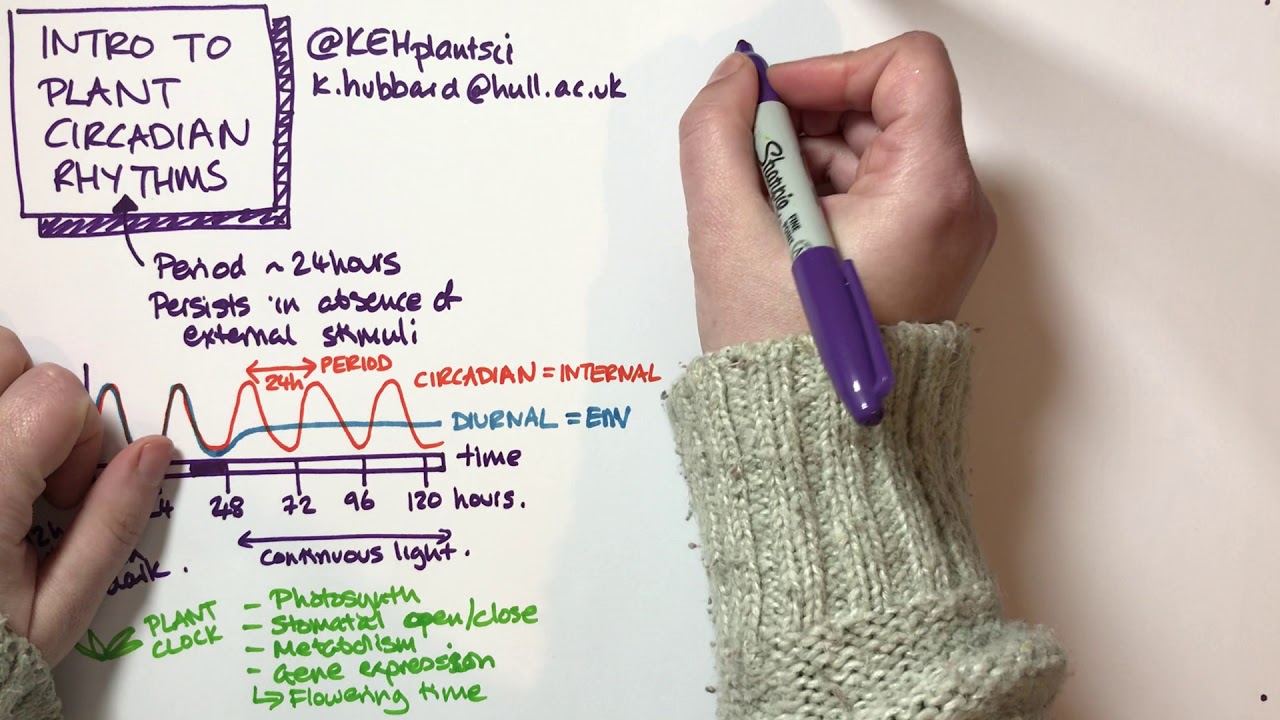 INTRO TO
PLANT
CIRCADIAN
RHYTHMS
@KEHplantsci
k.hubbard@hull.ac.uk
Period ~ 24hours
Persists in absence of
external stimuli
PERIOD
24h
CIRCADIAN = INTERNAL
DIURNAL = ENV
time
48 72 96 120 hours.
continuous light.
dark.
PLANT
CLOCK
- Photosynth
- Stomatal open/close
- Metabolism
- Gene expression
↳ Flowering time
Sharpie
FINE